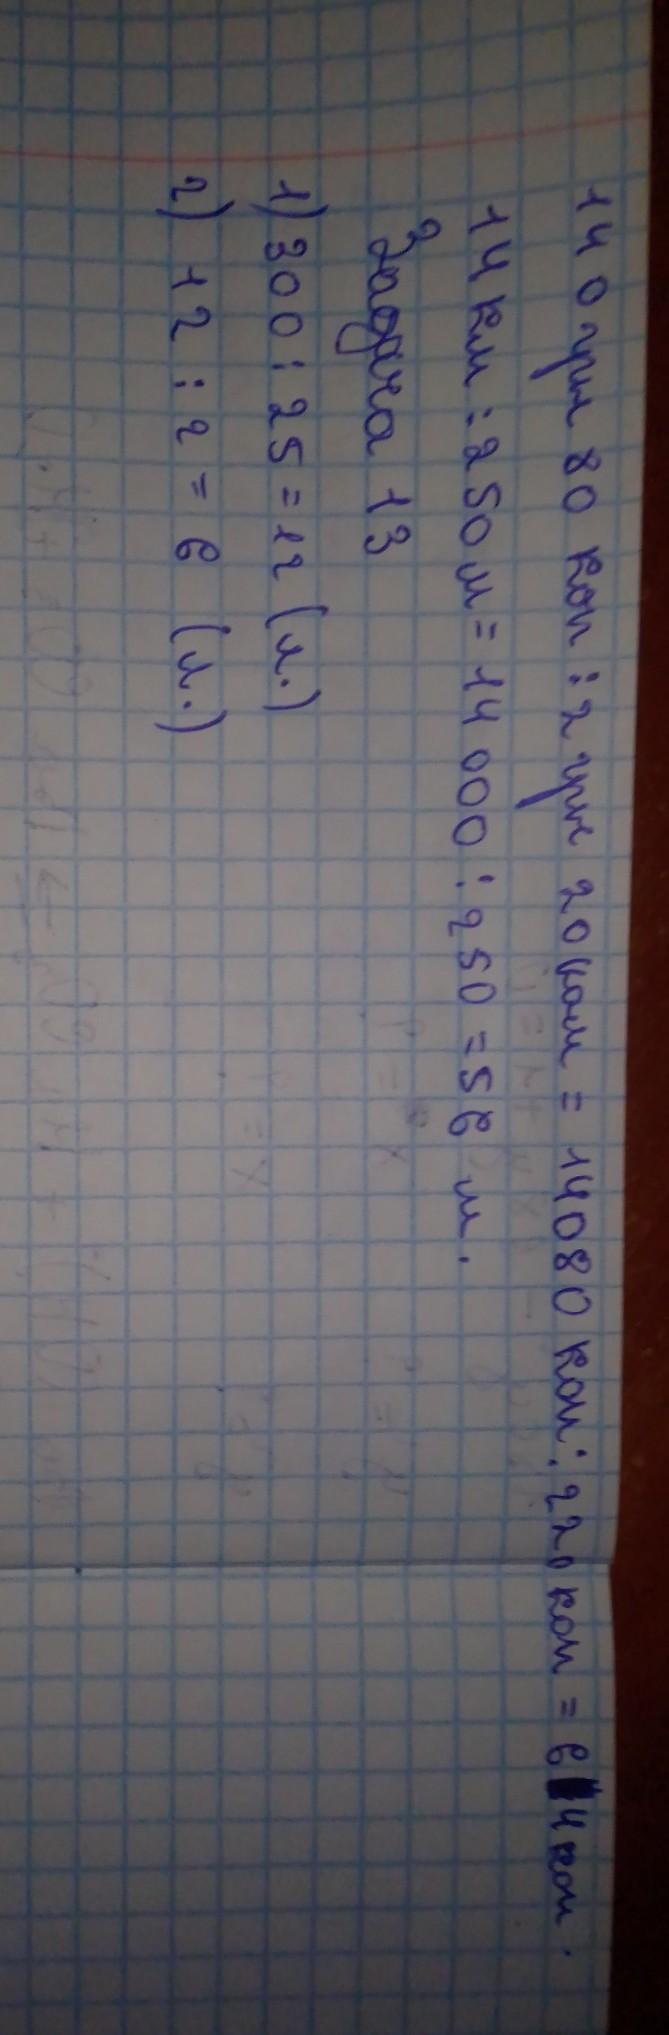 140 грн 80 коп : 2 грн 20 коп = 14080 коп : 220 коп = 64 коп.
14 км : 250 м = 14 000 : 250 = 56 м.
Задача 13
1) 300 : 25 = 12 (м.)
2) 12 : 2 = 6 (м.)